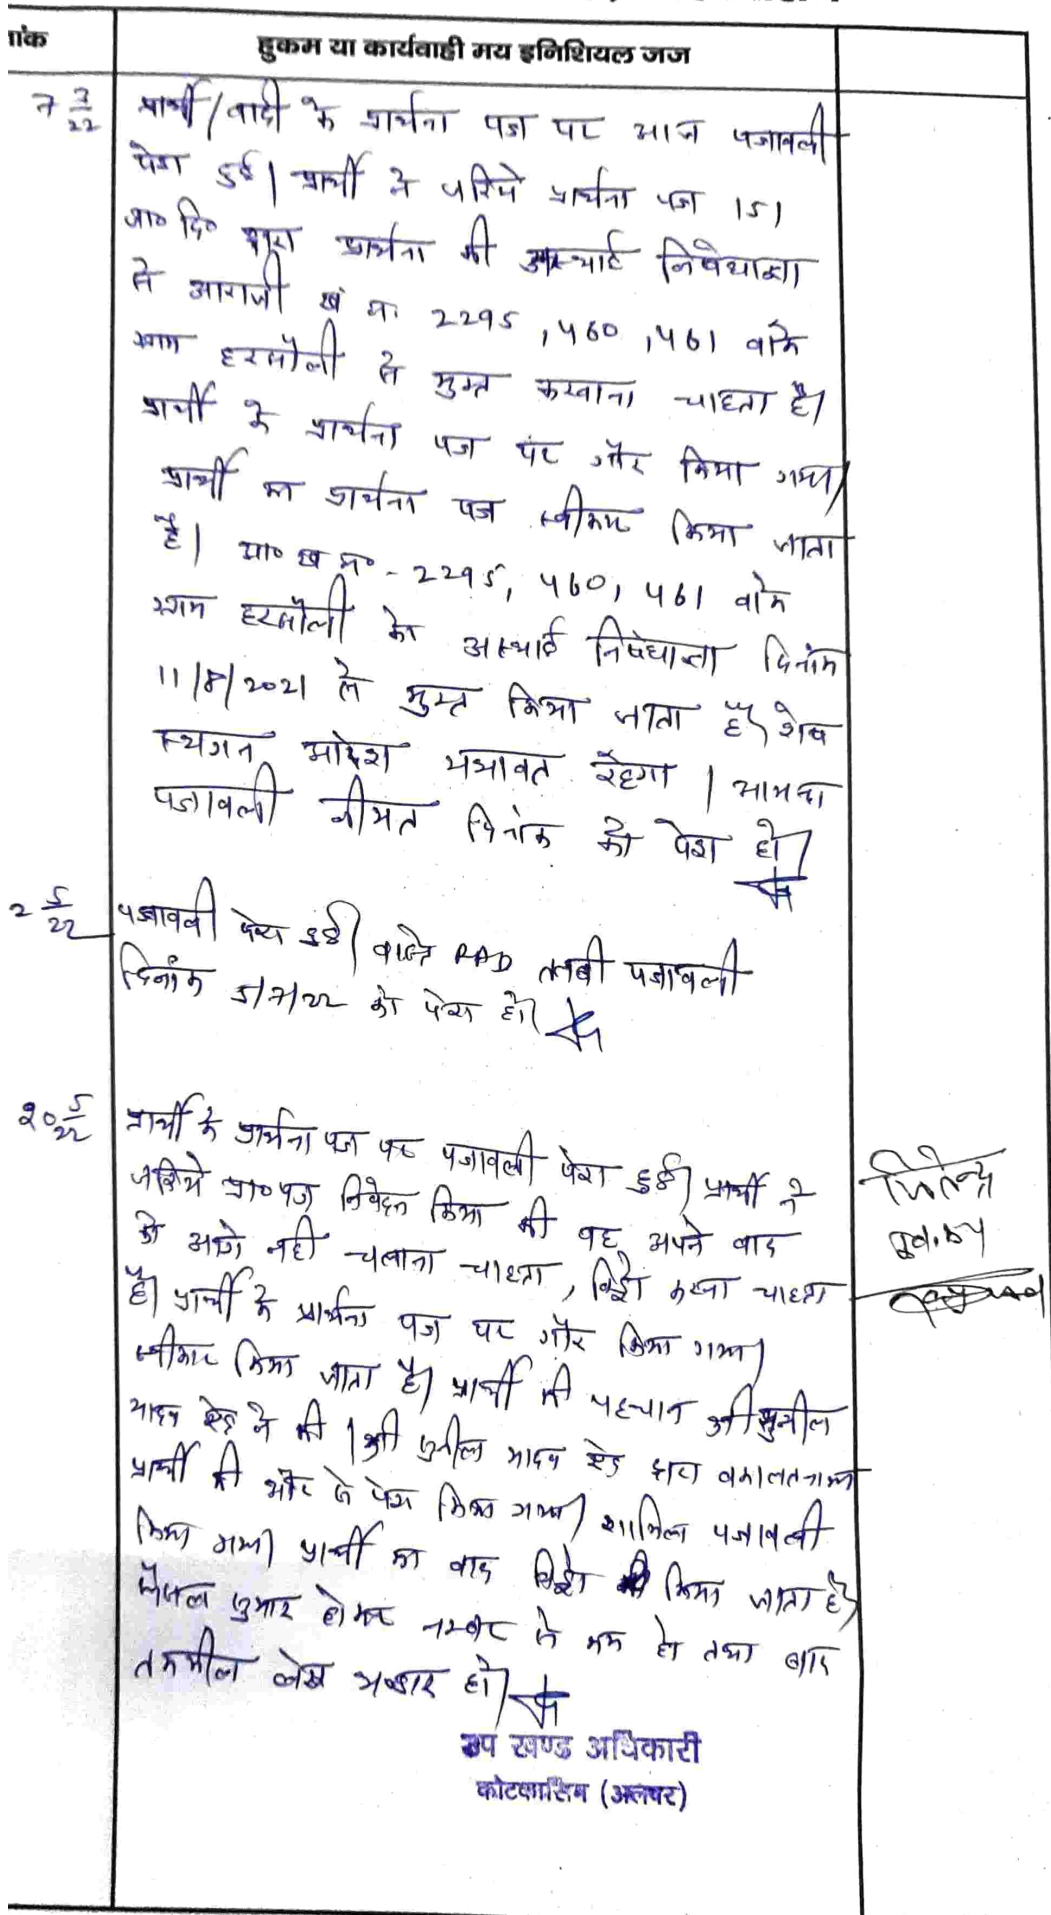 ांक
हुकम या कार्यवाही मय इनिशियल जज
7 3/22
प्रार्थी/वादी के प्रार्थना पत्र पर आज पत्रावली
पेश हुई। प्रार्थी ने जरिये प्रार्थना पत्र 151
जा० दि० द्वारा प्रार्थना की अस्थाई निषेधाज्ञा
से आराजी खं न. 2295, 460, 461 वाके
ग्राम हरसौली से मुक्त करवाना चाहता है।
प्रार्थी के प्रार्थना पत्र पर गौर किया गया।
प्रार्थी का प्रार्थना पत्र स्वीकार किया जाता
है। आ० ख न० - 2295, 460, 461 वाके
ग्राम हरसौली को अस्थाई निषेधाज्ञा दिनांक
11/8/2021 से मुक्त किया जाता है। शेष
स्थगन आदेश यथावत रहेगा। आयन्दा
पत्रावली नीयत दिनांक को पेश हो।
2 5/22
पत्रावली पेश हुई। वास्ते RAD तलबी पत्रावली
दिनांक 5/7/22 को पेश हो।
20 5/22
प्रार्थी के प्रार्थना पत्र पर पत्रावली पेश हुई। प्रार्थी ने
जरिये प्रा० पत्र निवेदन किया की वह अपने वाद
को आगे नही चलाना चाहता, विड्रो करना चाहता
है। प्रार्थी के प्रार्थना पत्र पर गौर किया गया।
स्वीकार किया जाता है। प्रार्थी की पहचान श्री सुनील
यादव एड ने की। श्री सुनील यादव एड द्वारा वकालतनामा
प्रार्थी की और से पेश किया गया। शामिल पत्रावली
किया गया। प्रार्थी का वाद विड्रो किया जाता है।
फैसल शुमार होकर नम्बर से कम हो तथा बाद
तकमील लेख भण्डार हो।
जितेन्द्र
उप खण्ड अधिकारी
कोटकासिम (अलवर)